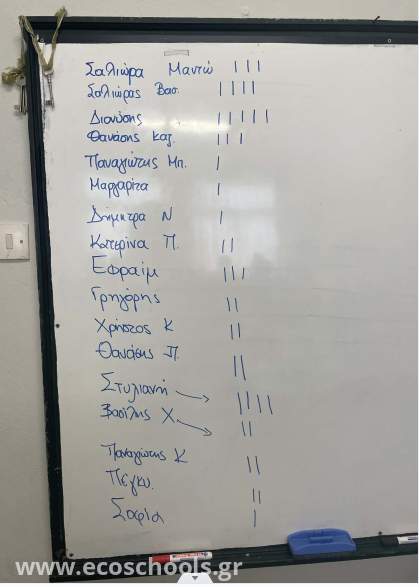 Σαλιώρα Μαντώ |||
Σαλιώρας Βασ. ||||
Διονύσης |||||
Θανάσης Καζ. |||
Παναγιώτης Μπ. |
Μαργαρίτα |
Δήμητρα Ν |
Κατερίνα Π. ||
Εφραίμ |||
Γρηγόρης ||
Χρήστος Κ ||
Θανάσης Π. ||
Στυλιανή → ||||
Βασίλης Χ. → ||
Παναγιώτης Κ ||
Πέγκυ. ||
Σοφία |
www.ecoschools.gr